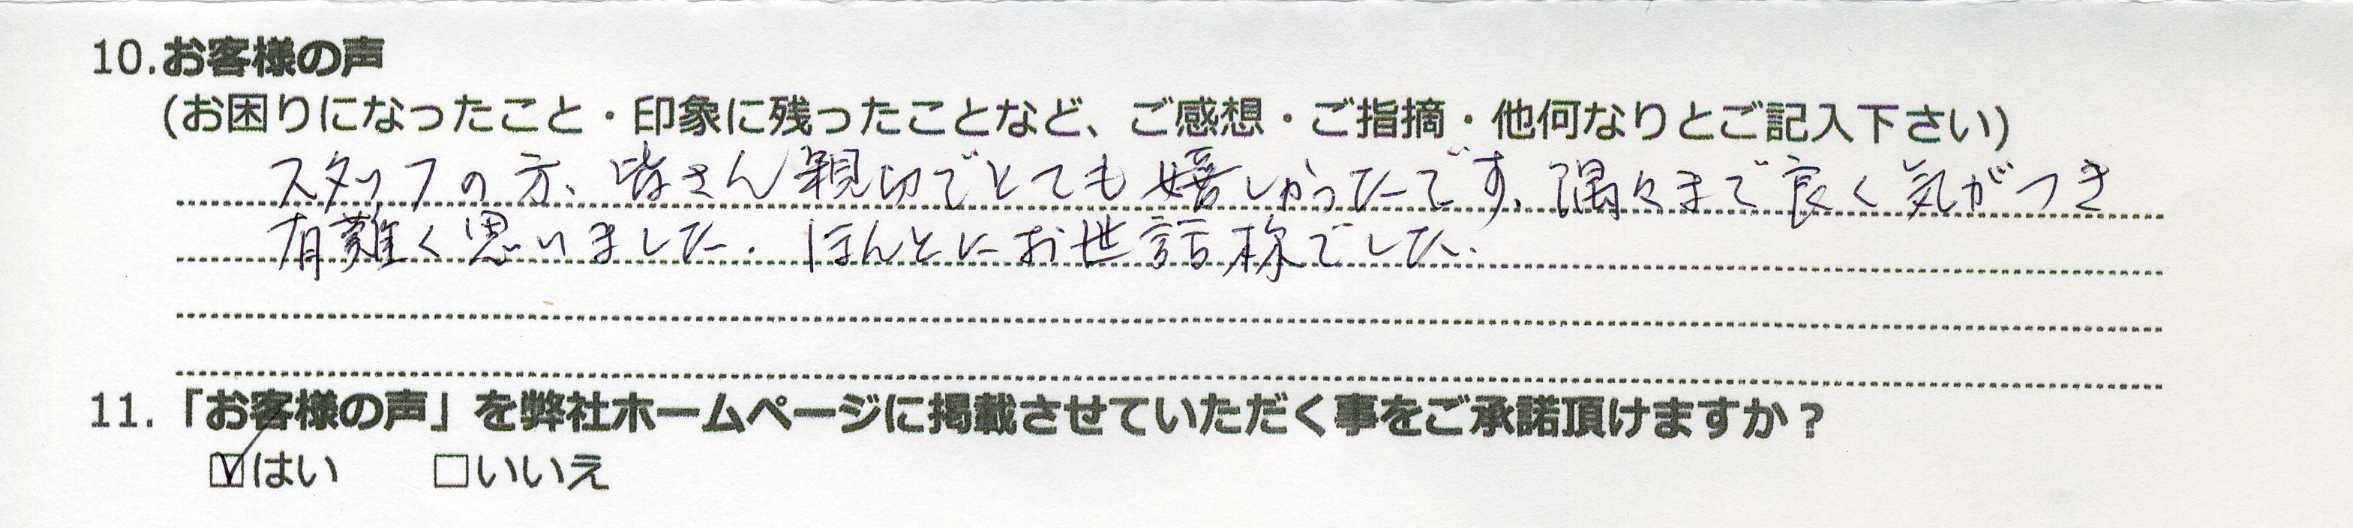 10.お客様の声
(お困りになったこと・印象に残ったことなど、ご感想・ご指摘・他何なりとご記入下さい)
スタッフの方、皆さん親切でとても嬉しかったです、隅々まで良く気がつき
有難く思いました. ほんとにお世話様でした.
11.「お客様の声」を弊社ホームページに掲載させていただく事をご承諾頂けますか？
☑はい □いいえ